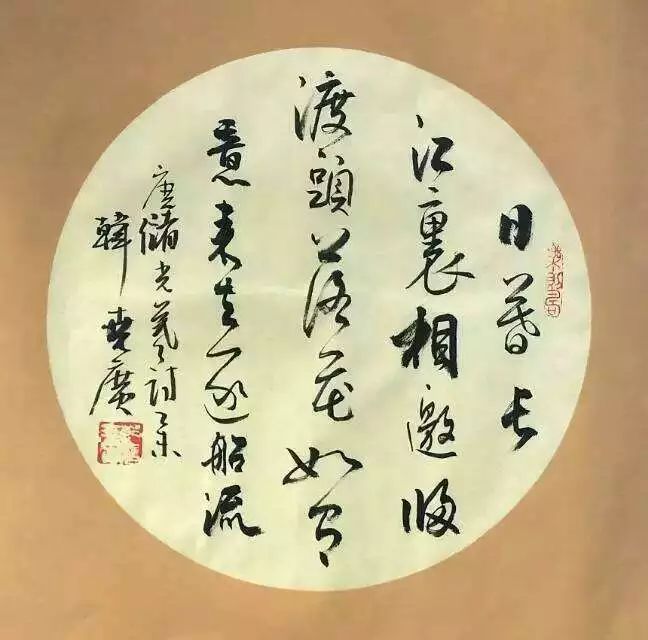 日暮长
江裏相邀歸
渡頭落花如有
意来去逐船流
唐儲光羲詩
韓 廣